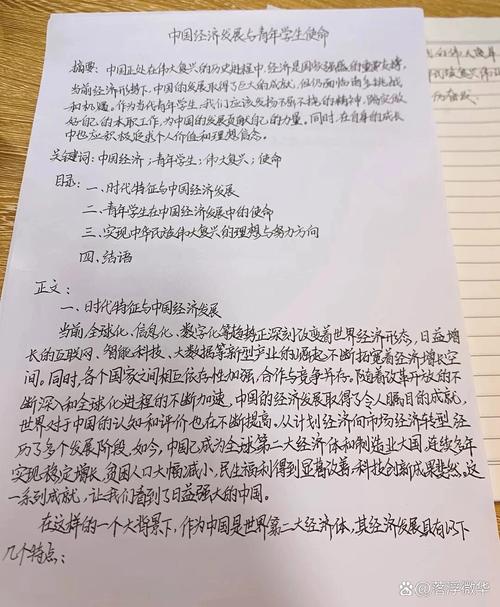 中国经济发展与青年学生使命
摘要：中国正处在伟大复兴的历史进程中，经济是国家强盛的重要支撑。
当前经济形势下，中国的发展取得了巨大的成就，但仍面临诸多挑战
和机遇。作为当代青年学生，我们应该发扬不屈不挠的精神，踏实做
好自己的本职工作，为中国的发展贡献自己的力量。同时，在自身的成长
中也应积极追求个人价值和理想信念。
关键词：中国经济；青年学生；伟大复兴；使命
目录：一、时代特征与中国经济发展
二、青年学生在中国经济发展中的使命
三、实现中华民族伟大复兴的理想与努力方向
四、结语
正文：
一、时代特征与中国经济发展
当前，全球化、信息化、数字化等趋势正深刻改变着世界经济形态，日益增
长的互联网、智能科技、大数据等新型产业的崛起，不断拓宽着经济增长空
间。同时，各个国家之间相互依存性加强，合作与竞争并存。随着改革开放的不
断深入和全球化进程的不断加速，中国的经济发展取得了令人瞩目的成就，
世界对于中国的认知和评价也在不断提高。从计划经济向市场经济转型，经
历了多个发展阶段。如今，中国已成为全球第二大经济体和制造业大国，连续多年
实现稳定增长，贫困人口大幅减小，民生福利得到显著改善，科技创新成果斐然。这
一系列成就，让我们看到了日益强大的中国。
在这样的一个大背景下，作为中国是世界第二大经济体，其经济发展具有以下
几个特点：
的伟大复兴
民族复兴伟
@落浮微华